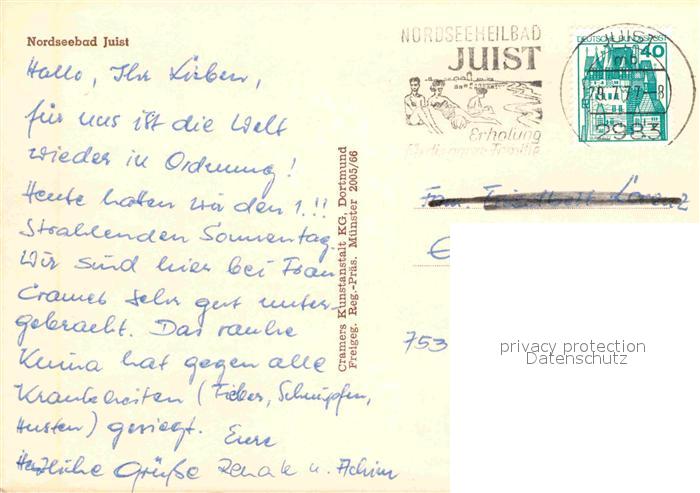 Nordseebad Juist
Hallo, Ihr Lieben,
für uns ist die Welt
wieder in Ordnung!
Heute hatten wir den 1.!!
Strahlenden Sonnentag.
Wir sind hier bei Frau
Cramer sehr gut unter-
gebracht. Das rauhe
Klima hat gegen alle
Krankheiten (Fieber, Schnupfen,
Husten) gesiegt. Eure
Herzliche Grüße Renate u. Achim
Cramers Kunstanstalt KG, Dortmund
Freigeg. Reg.-Präs. Münster 2005/66
NORDSEEHEILBAD
JUIST
Erholung
für die ganze Familie
DEUTSCHE BUNDESPOST
40
JUIST
mb
2983
753
privacy protection
Datenschutz